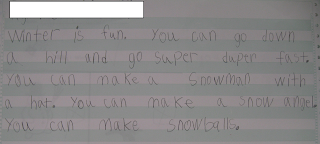 Winter is fun. You can go down
a hill and go super duper fast.
You can make a snowman with
a hat. You can make a snow angel.
You can make snowballs.